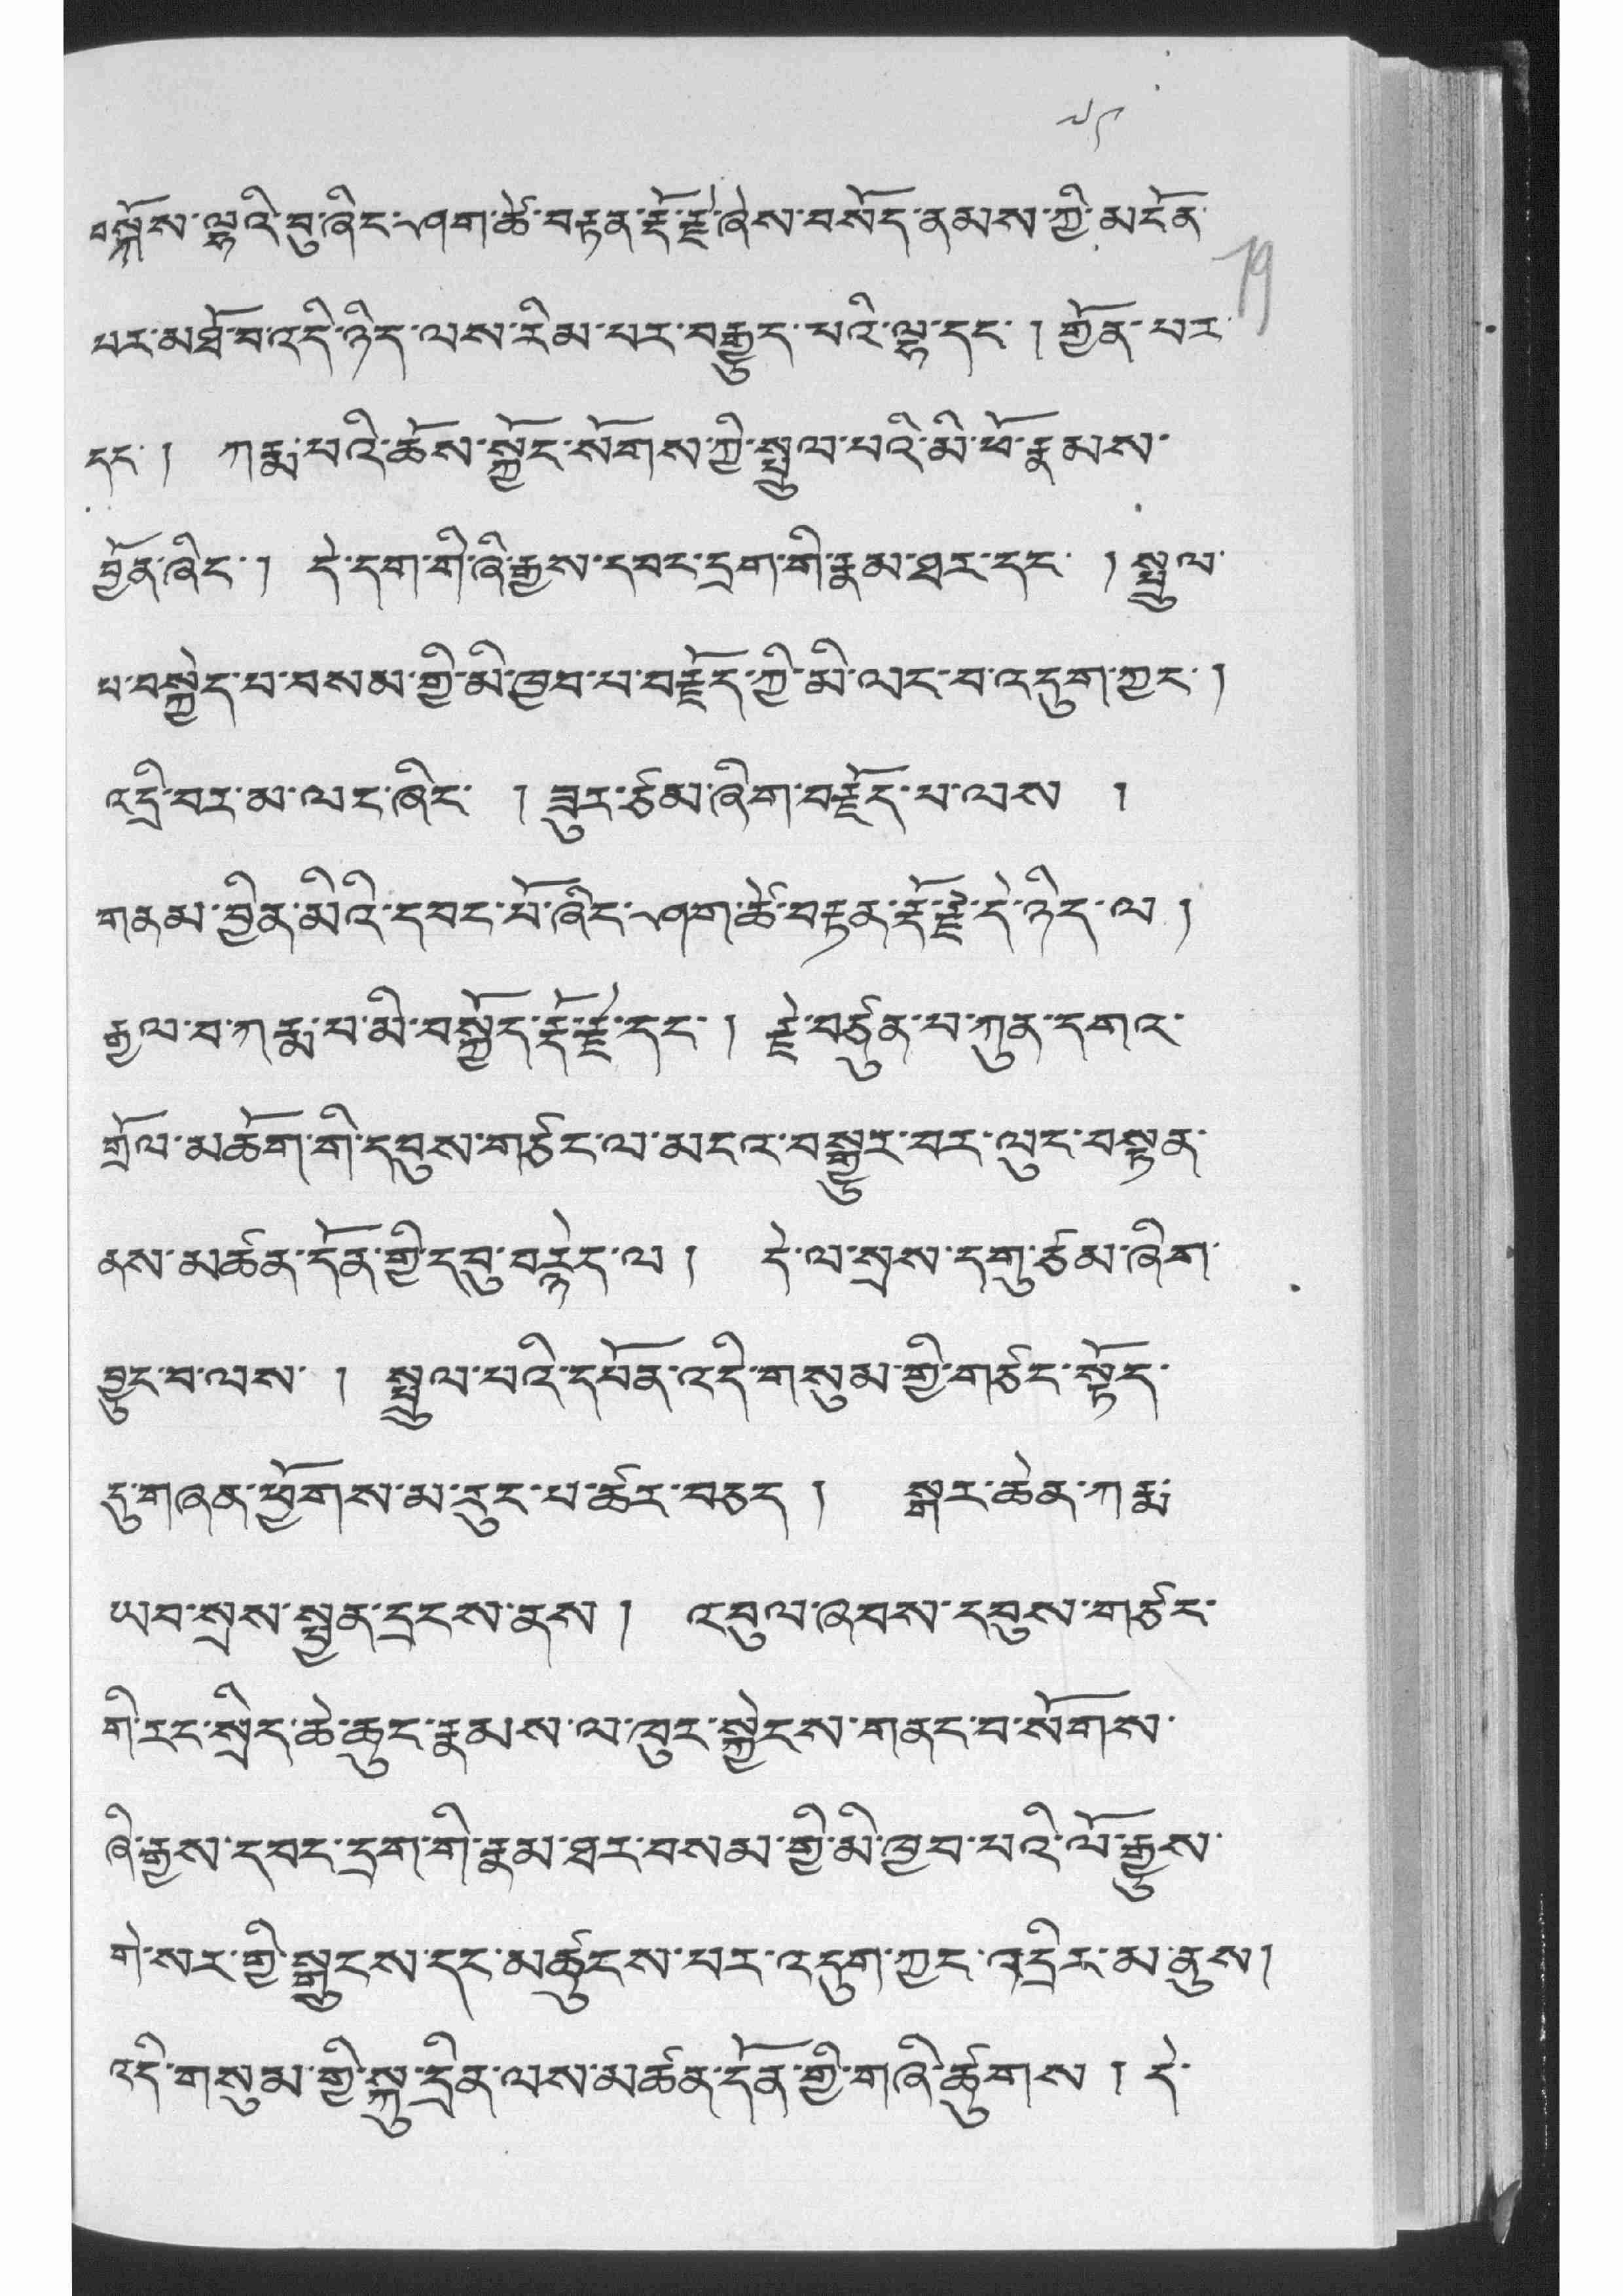 ༧༩
བསྐོས་ལྷའི་བུ་ཞིང་ཤག་ཚེ་བརྟན་རྡོ་རྗེ་ཞེས་བསོད་ནམས་ཀྱི་མངོན་
19
པར་མཐོ་བ་འདི་ཉིད་ལས་རིམ་པར་བརྒྱུད་པའི་ལྷ་དང་ ། གྱོན་པར་
དང་ ། ཀརྨ་པའི་ཆོས་སྐྱོང་སོགས་ཀྱི་སྤྲུལ་པའི་མི་ཕོ་རྣམས་
བྱོན་ཞིང་ ། དེ་དག་གི་ཞི་རྒྱས་དབང་དྲག་གི་རྣམ་ཐར་དང་ ། སྤྲུལ་
པ་བསྐྱེད་པ་བསམ་གྱི་མི་ཁྱབ་པ་བརྗོད་ཀྱི་མི་ལང་བ་འདུག་ཀྱང་ །
འདྲི་བར་མ་ལང་ཞིང་ ། ཟུར་ཙམ་ཞིག་བརྗོད་པ་ལས །
གནམ་བྱིན་མིའི་དབང་པོ་ཞིང་ཤག་ཚེ་བརྟན་རྡོ་རྗེ་དེ་ཉིད་ལ །
རྒྱལ་བ་ཀརྨ་པ་མི་བསྐྱོད་རྡོ་རྗེ་དང་ ། རྗེ་བཙུན་པ་ཀུན་དགའ་
གྲོལ་མཆོག་གི་དབུས་གཙང་ལ་མངའ་བསྒྱུར་བར་ལུང་བསྟན་
ནས་མཚན་དོན་གྱི་དབུ་བརྙེད་ལ ། དེ་ལ་སྲས་དགུ་ཙམ་ཞིག་
བྱུང་བ་ལས་ ། སྤྲུལ་པའི་དཔོན་འདི་གསུམ་གྱི་གཙང་སྟོད་
དུ་གཞན་ཕྱོགས་མ་རུང་པ་ཚར་བཅད ། སྒར་ཆེན་ཀརྨ་
ཡབ་སྲས་སྤྱན་དྲངས་ནས ། འབུལ་ཞབས་དབུས་གཙང་
གི་རང་སྲིད་ཆེ་ཆུང་རྣམས་ལ་ཁུར་སྐྱེངས་གནང་བ་སོགས་
ཞི་རྒྱས་དབང་དྲག་གི་རྣམ་ཐར་བསམ་གྱི་མི་ཁྱབ་པའི་ལོ་རྒྱུས་
གེ་སར་གྱི་སྒྲུངས་དང་མཚུངས་པར་འདུག་ཀྱང་འདྲིར་མ་ནུས །
འདི་གསུམ་གྱི་སྐུ་དྲིན་ལས་མཚན་དོན་གྱི་གཞི་ཚུགས ། དེ་